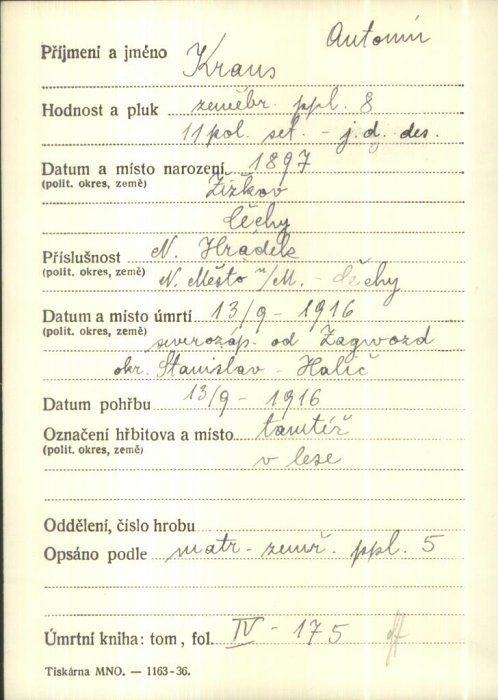 Antonín
Příjmení a jméno Kraus
Hodnost a pluk zeměbr. ppl. 8
11 pol. set. - j. d. des.
Datum a místo narození 1897
(polit. okres, země) Žižkov
Čechy
Příslušnost N. Hradek
(polit. okres, země) N. Město n/M. - Čechy
Datum a místo úmrtí 13/9 - 1916
(polit. okres, země) severozáp. od Zagwozd
okr. Stanislav - Halič
Datum pohřbu 13/9 - 1916
Označení hřbitova a místo tamtéž
(polit. okres, země) v lese
Oddělení, číslo hrobu
Opsáno podle matr - zemř. ppl. 5
Úmrtní kniha: tom, fol. IV - 175
Tiskárna MNO. — 1163-36.